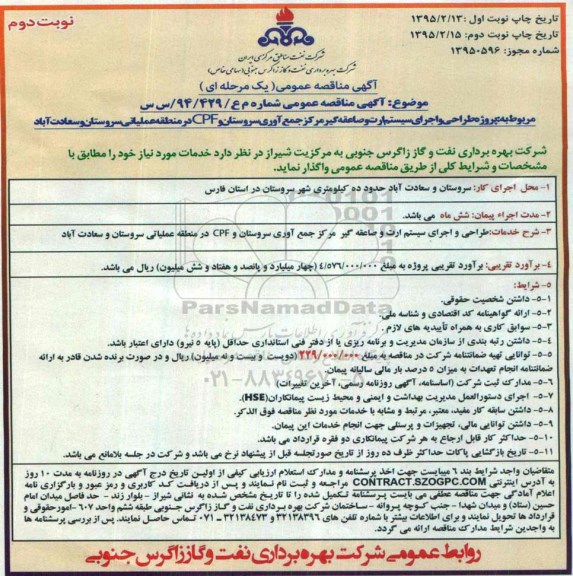 نوبت دوم
تاریخ چاپ نوبت اول :۱۳۹۵/۲/۱۳
تاریخ چاپ نوبت دوم: ۱۳۹۵/۲/۱۵
شماره مجوز: ۱۳۹۵۰۵۹۶
شرکت نفت مناطق مرکزی ایران
شرکت بهره برداری نفت و گاز زاگرس جنوبی (سهامی خاص)
آگهی مناقصه عمومی( یک مرحله ای )
موضوع: آگهی مناقصه عمومی شماره م ع /۹۴/۴۲۹/ س س
مربوط به پروژه طراحی و اجرای سیستم ارت و صاعقه گیر مرکز جمع آوری سروستان و CPF در منطقه عملیاتی سروستان و سعادت آباد
شرکت بهره برداری نفت و گاز زاگرس جنوبی به مرکزیت شیراز در نظر دارد خدمات مورد نیاز خود را مطابق با
مشخصات و شرایط کلی از طریق مناقصه عمومی واگذار نماید.
۱- محل اجرای کار: سروستان و سعادت آباد حدود ده کیلومتری شهر سروستان در استان فارس
۲- مدت اجراء پیمان: شش ماه می باشد.
۳- شرح خدمات:طراحی و اجرای سیستم ارت و صاعقه گیر مرکز جمع آوری سروستان و CPF در منطقه عملیاتی سروستان و سعادت آباد
۴- برآورد تقریبی: برآورد تقریبی پروژه به مبلغ ۴/۵۷۶/۰۰۰/۰۰۰ (چهار میلیارد و پانصد و هفتاد و شش میلیون) ریال می باشد.
۵- شرایط:
۵-۱- داشتن شخصیت حقوقی.
۵-۲- ارائه گواهینامه کد اقتصادی و شناسه ملی.
۵-۳- سوابق کاری به همراه تأییدیه های لازم.
۵-۴- داشتن رتبه بندی از سازمان مدیریت و برنامه ریزی یا از دفتر فنی استانداری حداقل (پایه ۵ نیرو) دارای اعتبار باشد.
۵-۵- توانایی تهیه ضمانتنامه شرکت در مناقصه به مبلغ ۲۲۹/۰۰۰/۰۰۰ (دویست و بیست و نه میلیون) ریال و در صورت برنده شدن قادر به ارائه
ضمانتنامه انجام تعهدات به میزان ۵ درصد بار مالی سالیانه پیمان.
۵-۶- مدارک ثبت شرکت (اساسنامه، آگهی روزنامه رسمی، آخرین تغییرات)
۵-۷- اجرای دستورالعمل مدیریت بهداشت و ایمنی و محیط زیست پیمانکاران(HSE).
۵-۸- داشتن سابقه کار مفید، معتبر، مرتبط و مشابه با خدمات مورد نظر مناقصه فوق الذکر.
۵-۹- داشتن توانایی مالی، تجهیزات و پرسنلی جهت انجام خدمات این پیمان.
۵-۱۰- حداکثر کار قابل ارجاع به هر شرکت پیمانکاری دو فقره قرارداد می باشد.
۵-۱۱- تاریخ بازگشایی پاکات حداکثر ظرف ده روز از تاریخ صورتجلسه قبل از پیشنهاد نرخ می باشد و شرکت در جلسه بلامانع می باشد.
متقاضیان واجد شرایط بند ۶ میبایست جهت اخذ پرسشنامه و مدارک استعلام ارزیابی کیفی از اولین تاریخ درج آگهی در روزنامه به مدت ۱۰ روز
به آدرس اینترنتی CONTRACT.SZOGPC.COM مراجعه و ثبت نام نمایند و پس از دریافت کد کاربری و رمز عبور و بارگزاری نامه
اعلام آمادگی جهت مناقصه عطفی می بایست پرسشنامه تکمیل شده را تا تاریخ مشخص شده به نشانی شیراز - بلوار زند - حد فاصل میدان امام
حسین (ستاد) و میدان شهدا - جنب کوچه پروانه - ساختمان شرکت بهره برداری نفت و گاز زاگرس جنوبی طبقه ششم واحد ۶۰۷ -امور حقوقی و
قرارداد ها تحویل نمایند و برای اطلاعات بیشتر با شماره تلفن های ۳۲۱۳۸۳۹۶ و ۳۲۱۳۸۴۷۳ - ۰۷۱ تماس حاصل نمایند. پس از بررسی پرسشنامه ها
به واجدین شرایط مدارک مناقصه ارائه می گردد.
روابط عمومی شرکت بهره برداری نفت و گاز زاگرس جنوبی
ParsNamadData
۰۲۱-۸۸۳۴۹۶۷۰-۵